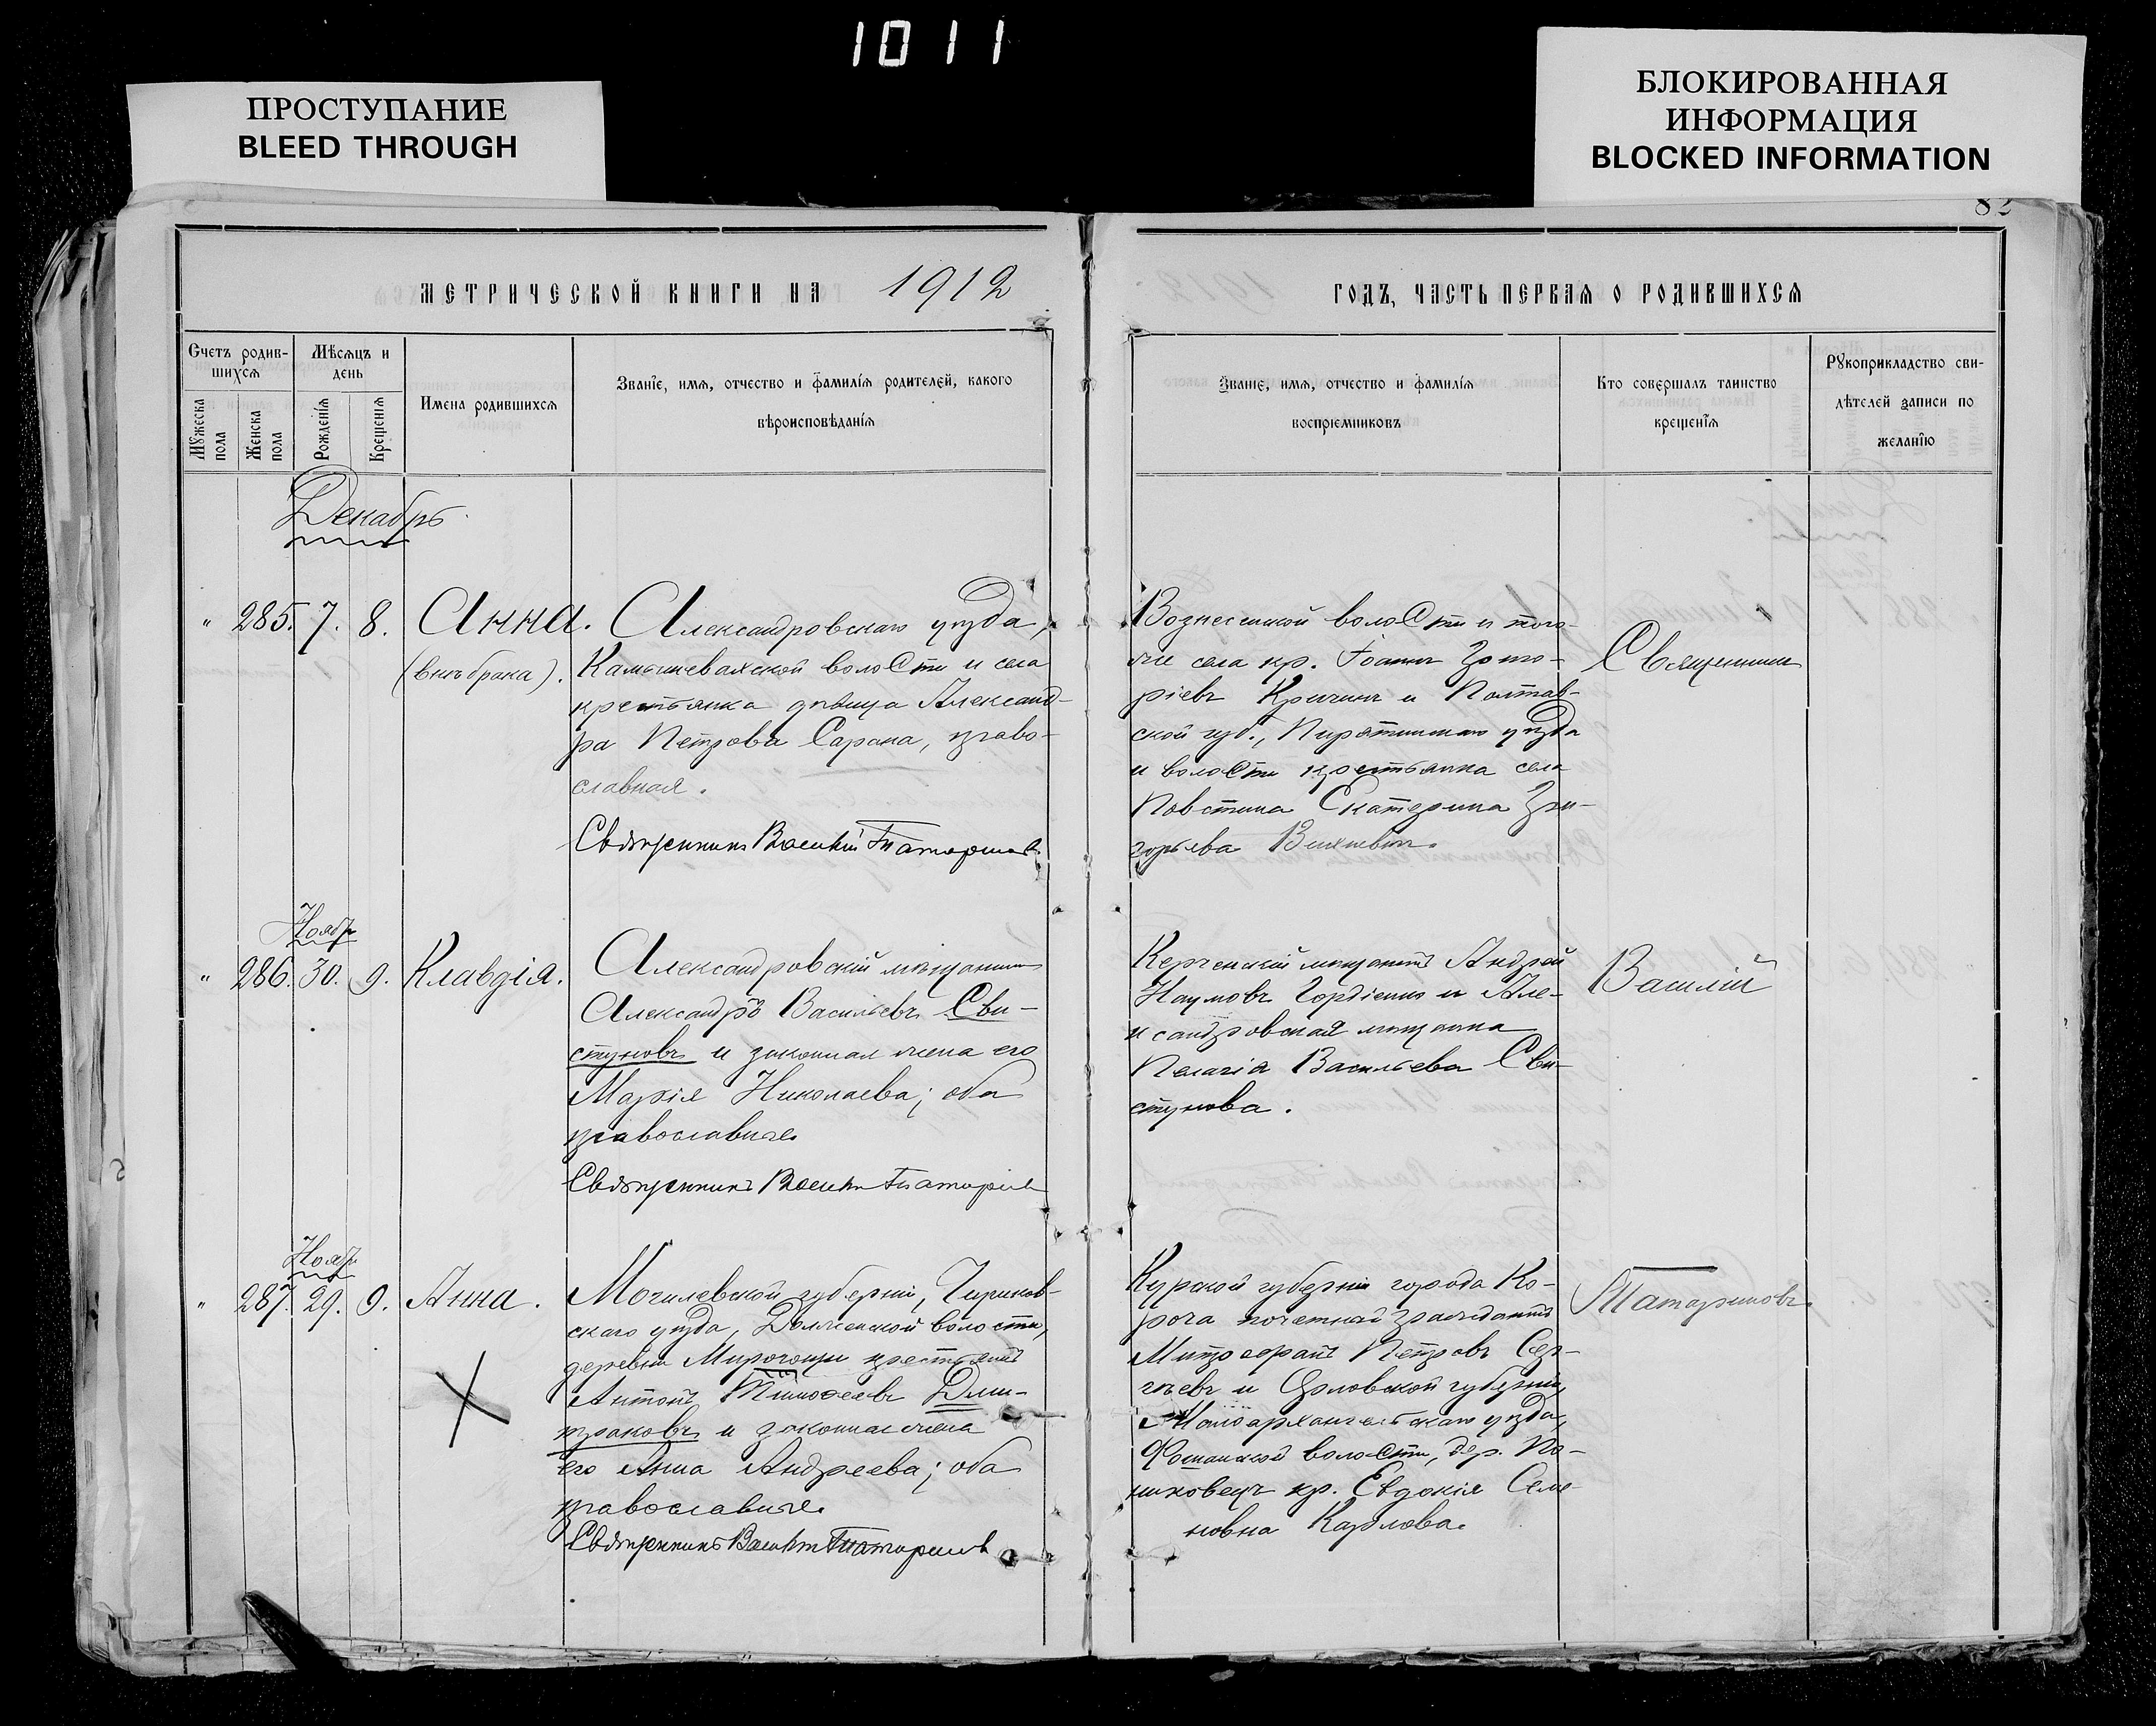 1011
ПРОСТУПАНИЕ
BLEED THROUGH
БЛОКИРОВАННАЯ
ИНФОРМАЦИЯ
BLOCKED INFORMATION
82
МЕТРИЧЕСКОЙ КНИГИ НА 1912
ГОДЪ, ЧАСТЬ ПЕРВАЯ О РОДИВШИХСЯ
Счетъ родив-
шихся
Мужеска пола
Женска пола
Мѣсяцъ и
день
Рожденія
Крещенія
Имена родившихся
Званіе, имя, отчество и фамилія родителей, какого
вѣроисповѣданія
Званіе, имя, отчество и фамилія
воспріемниковъ
Кто совершалъ таинство
крещенія
Рукоприкладство сви-
дѣтелей записи по
желанію
Декабрь
" 285. 7. 8. Анна.
(внѣ брака).
Александровскаго уѣзда,
Камышевахской волости и села
крестьянка дѣвица Александ-
ра Петрова Сарана, право-
славная.
Священникъ Василій Татариновъ
Вознесенской волости и того-
же села кр. Іоаннъ Григо-
ріевъ и Полтав-
ской губ., Пирятинскаго уѣзда
и волости крестьянка села
Повстина Екатерина Гри-
горьева
Священникъ
Ноябр.
" 286. 30. 9. Клавдія.
Александровскій мѣщанинъ
Александръ Васильевъ Сви-
стуновъ и законная жена его
Марія Николаева; оба
православные.
Священникъ Василій Татариновъ
Керченскій мѣщанинъ Андрей
Наумовъ Гордіенко и Але-
ксандровская мѣщанка
Пелагія Васильева Сви-
стунова.
Василій
Ноябр.
" 287. 29. 9. Анна.
Могилевской губерніи, Чериков-
скаго уѣзда, Долженской волости,
деревни крестьянинъ
Антонъ Тимоѳеевъ Дми-
траковъ и законная жена
его Анна Андреева; оба
православные.
Священникъ Василій Татариновъ
Курской губерніи города Ко-
роча почетный гражданинъ
Митрофанъ Петровъ Сер-
гѣевъ и Орловской губерніи,
Малоархангельскаго уѣзда,
волости, дер. По-
никовецъ кр. Евдокія Семе-
новна Карлова.
Татариновъ.